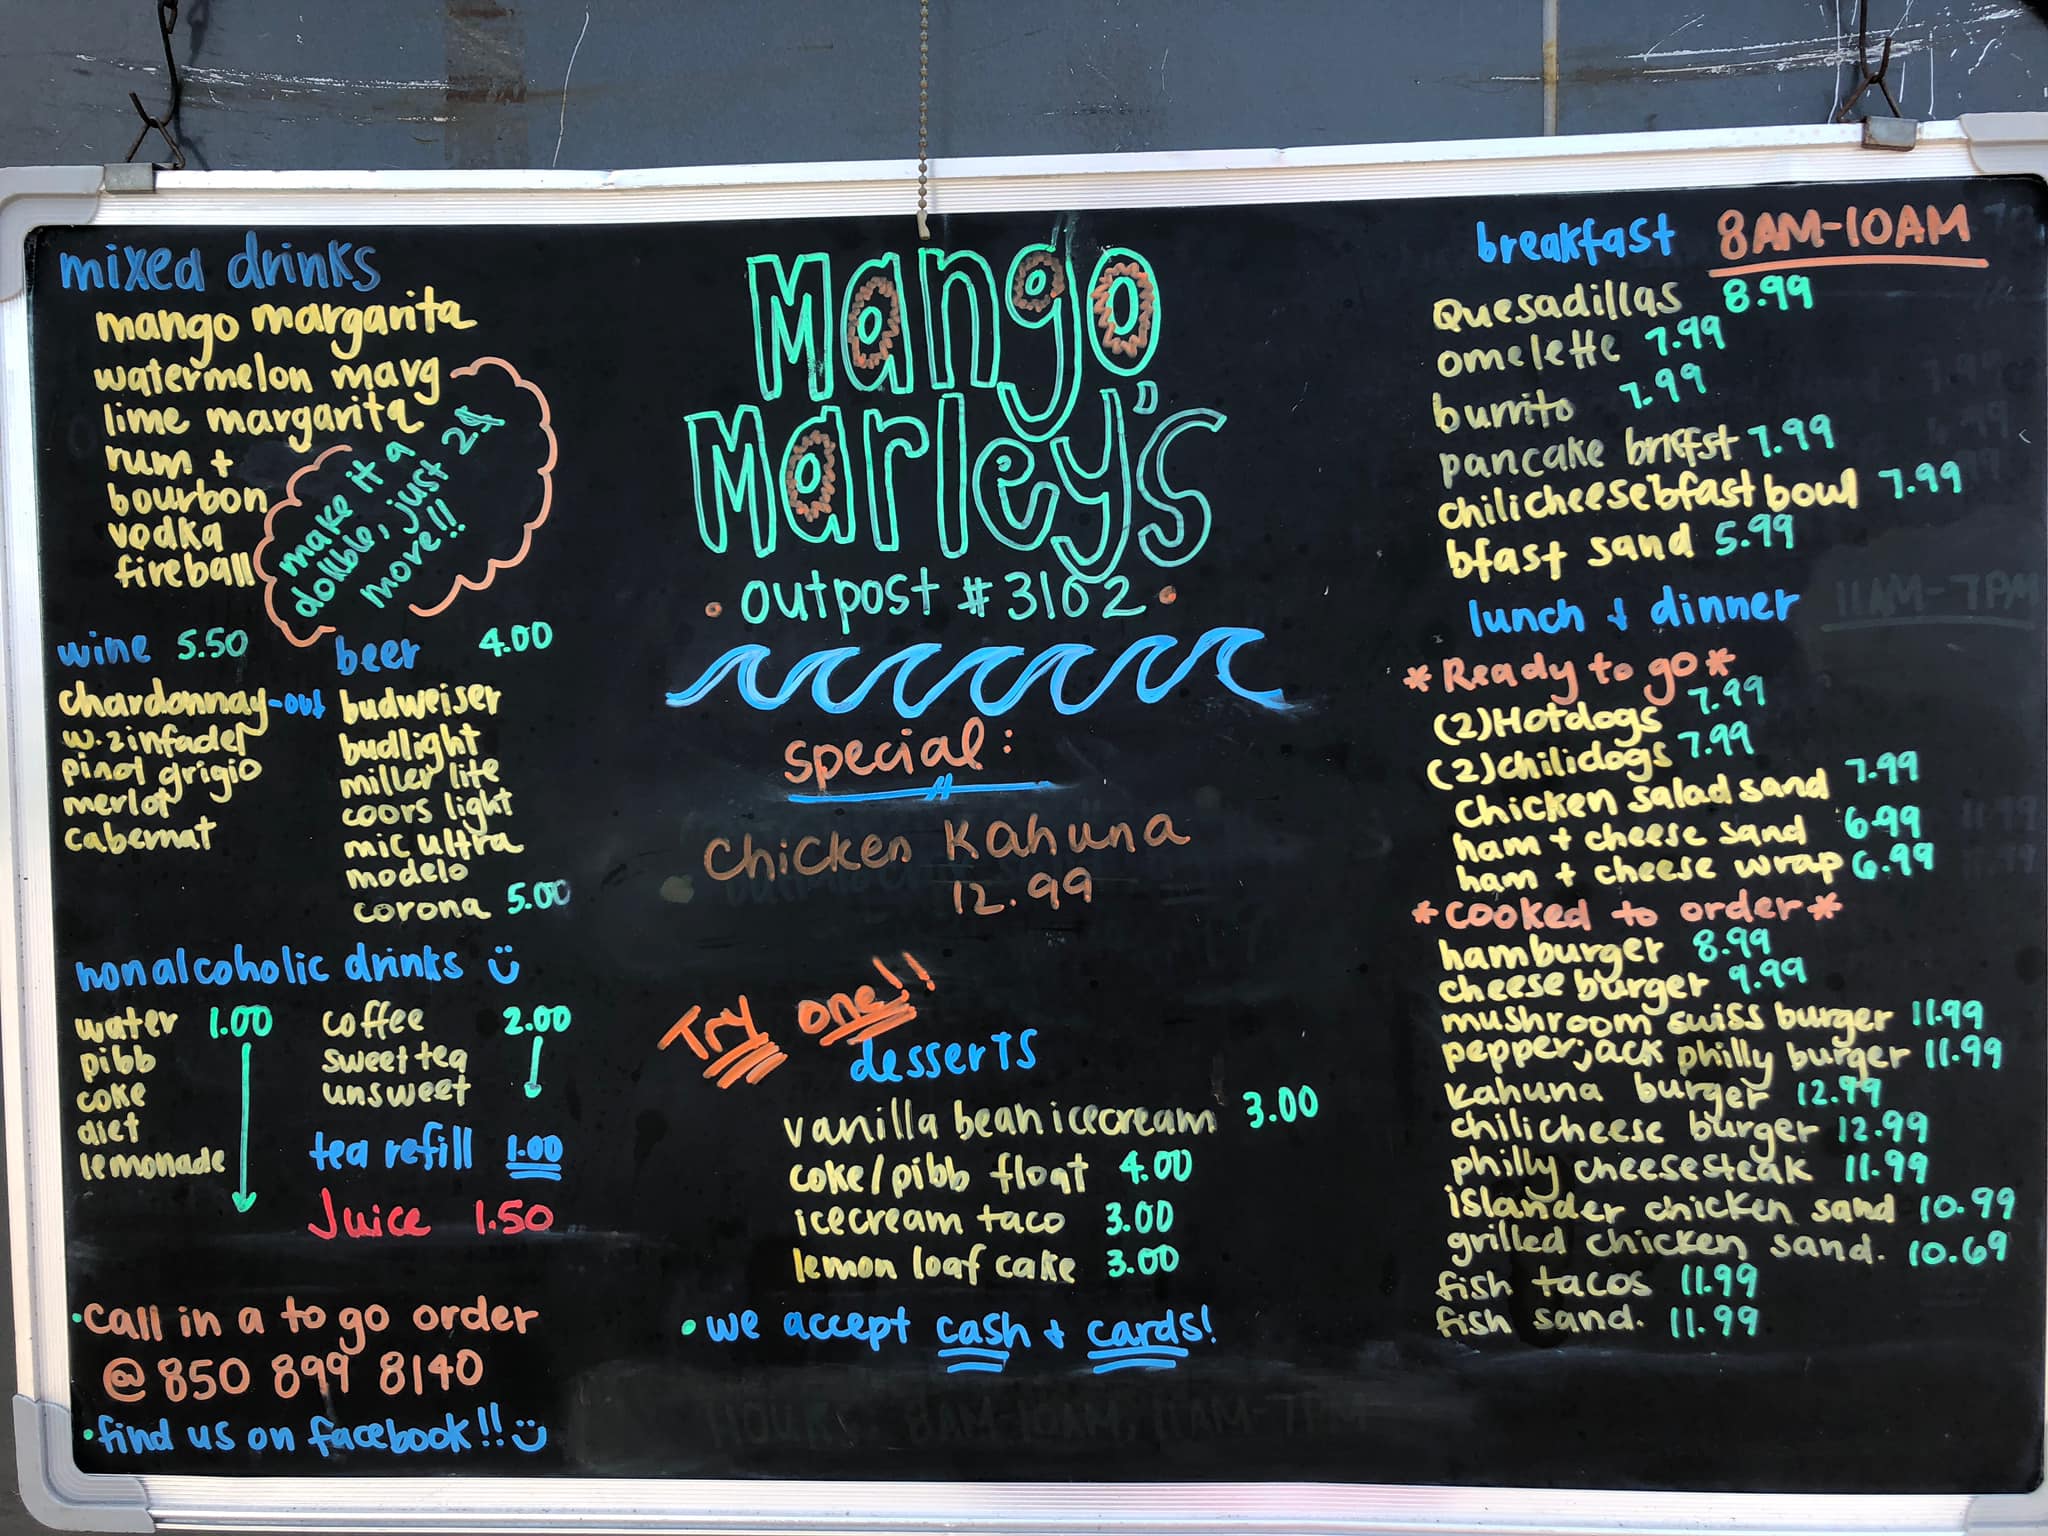 mixed drinks
mango margarita
watermelon marg
lime margarita
rum +
bourbon
vodka
fireball
make it a
double, just 2$
more!!
wine 5.50
chardonnay-out
w. zinfadel
pinot grigio
merlot
cabernat
beer 4.00
budweiser
budlight
miller lite
coors light
mic ultra
modelo
corona 5.00
nonalcoholic drinks
water 1.00
pibb
coke
diet
lemonade
coffee 2.00
sweet tea
unsweet
tea refill 1.00
Juice 1.50
•call in a to go order
@ 850 899 8140
•find us on facebook!!
Mango
Marley's
• outpost #3102 •
special:
Chicken Kahuna
12.99
Try one!!
desserts
vanilla bean icecream 3.00
coke/pibb float 4.00
icecream taco 3.00
lemon loaf cake 3.00
•we accept cash + cards!
HOURS 8AM-10AM, 11AM-7PM
breakfast 8AM-10AM
Quesadillas 8.99
omelette 7.99
burrito 7.99
pancake brkfst 7.99
chilicheese bfast bowl 7.99
bfast sand 5.99
lunch + dinner 11AM-7PM
*Ready to go*
(2)Hotdogs 7.99
(2)chilidogs 7.99
Chicken salad sand 7.99
ham + cheese sand 6.99
ham + cheese wrap 6.99
*Cooked to order*
hamburger 8.99
cheese burger 9.99
mushroom swiss burger 11.99
pepperjack philly burger 11.99
Kahuna burger 12.99
chilicheese burger 12.99
philly cheesesteak 11.99
islander chicken sand 10.99
grilled chicken sand. 10.69
fish tacos 11.99
fish sand. 11.99